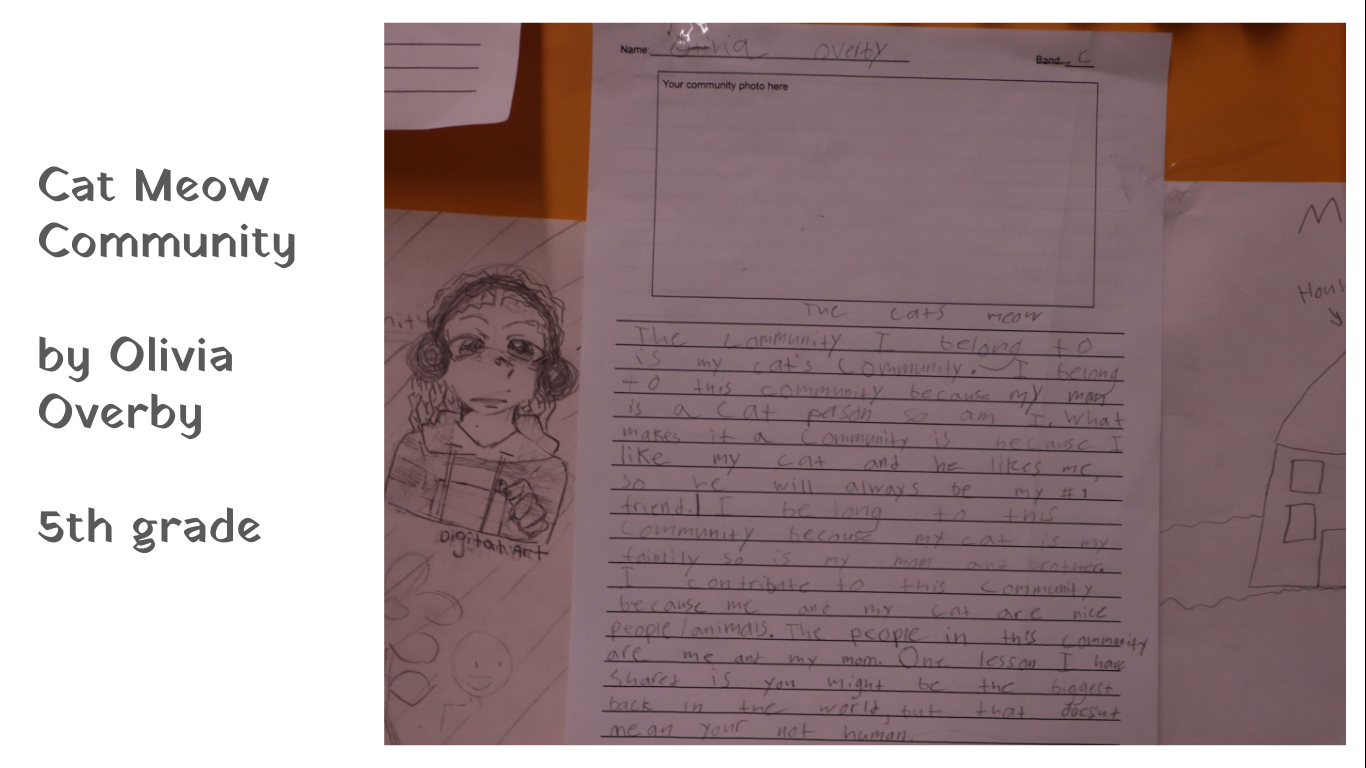 Cat Meow
Community
by Olivia
Overby
5th grade
Name: Olivia Overby
Band: C
Your community photo here
The cats meow
The Community I belong to
is my cat's Community. I belong
to this community because my mom
is a cat person so am I. What
makes it a Community is because I
like my cat and he likes me,
so he will always be my #1
friend. I belong to this
Community because my cat is my
faimily so is my mom and brother.
I contribute to this Community
because me and my cat are nice
people/animals. The people in this community
are me and my mom. One lesson I have
shared is you might be the biggest
back in the world, but that doesn't
mean your not human.
Digital Art
M
Hous